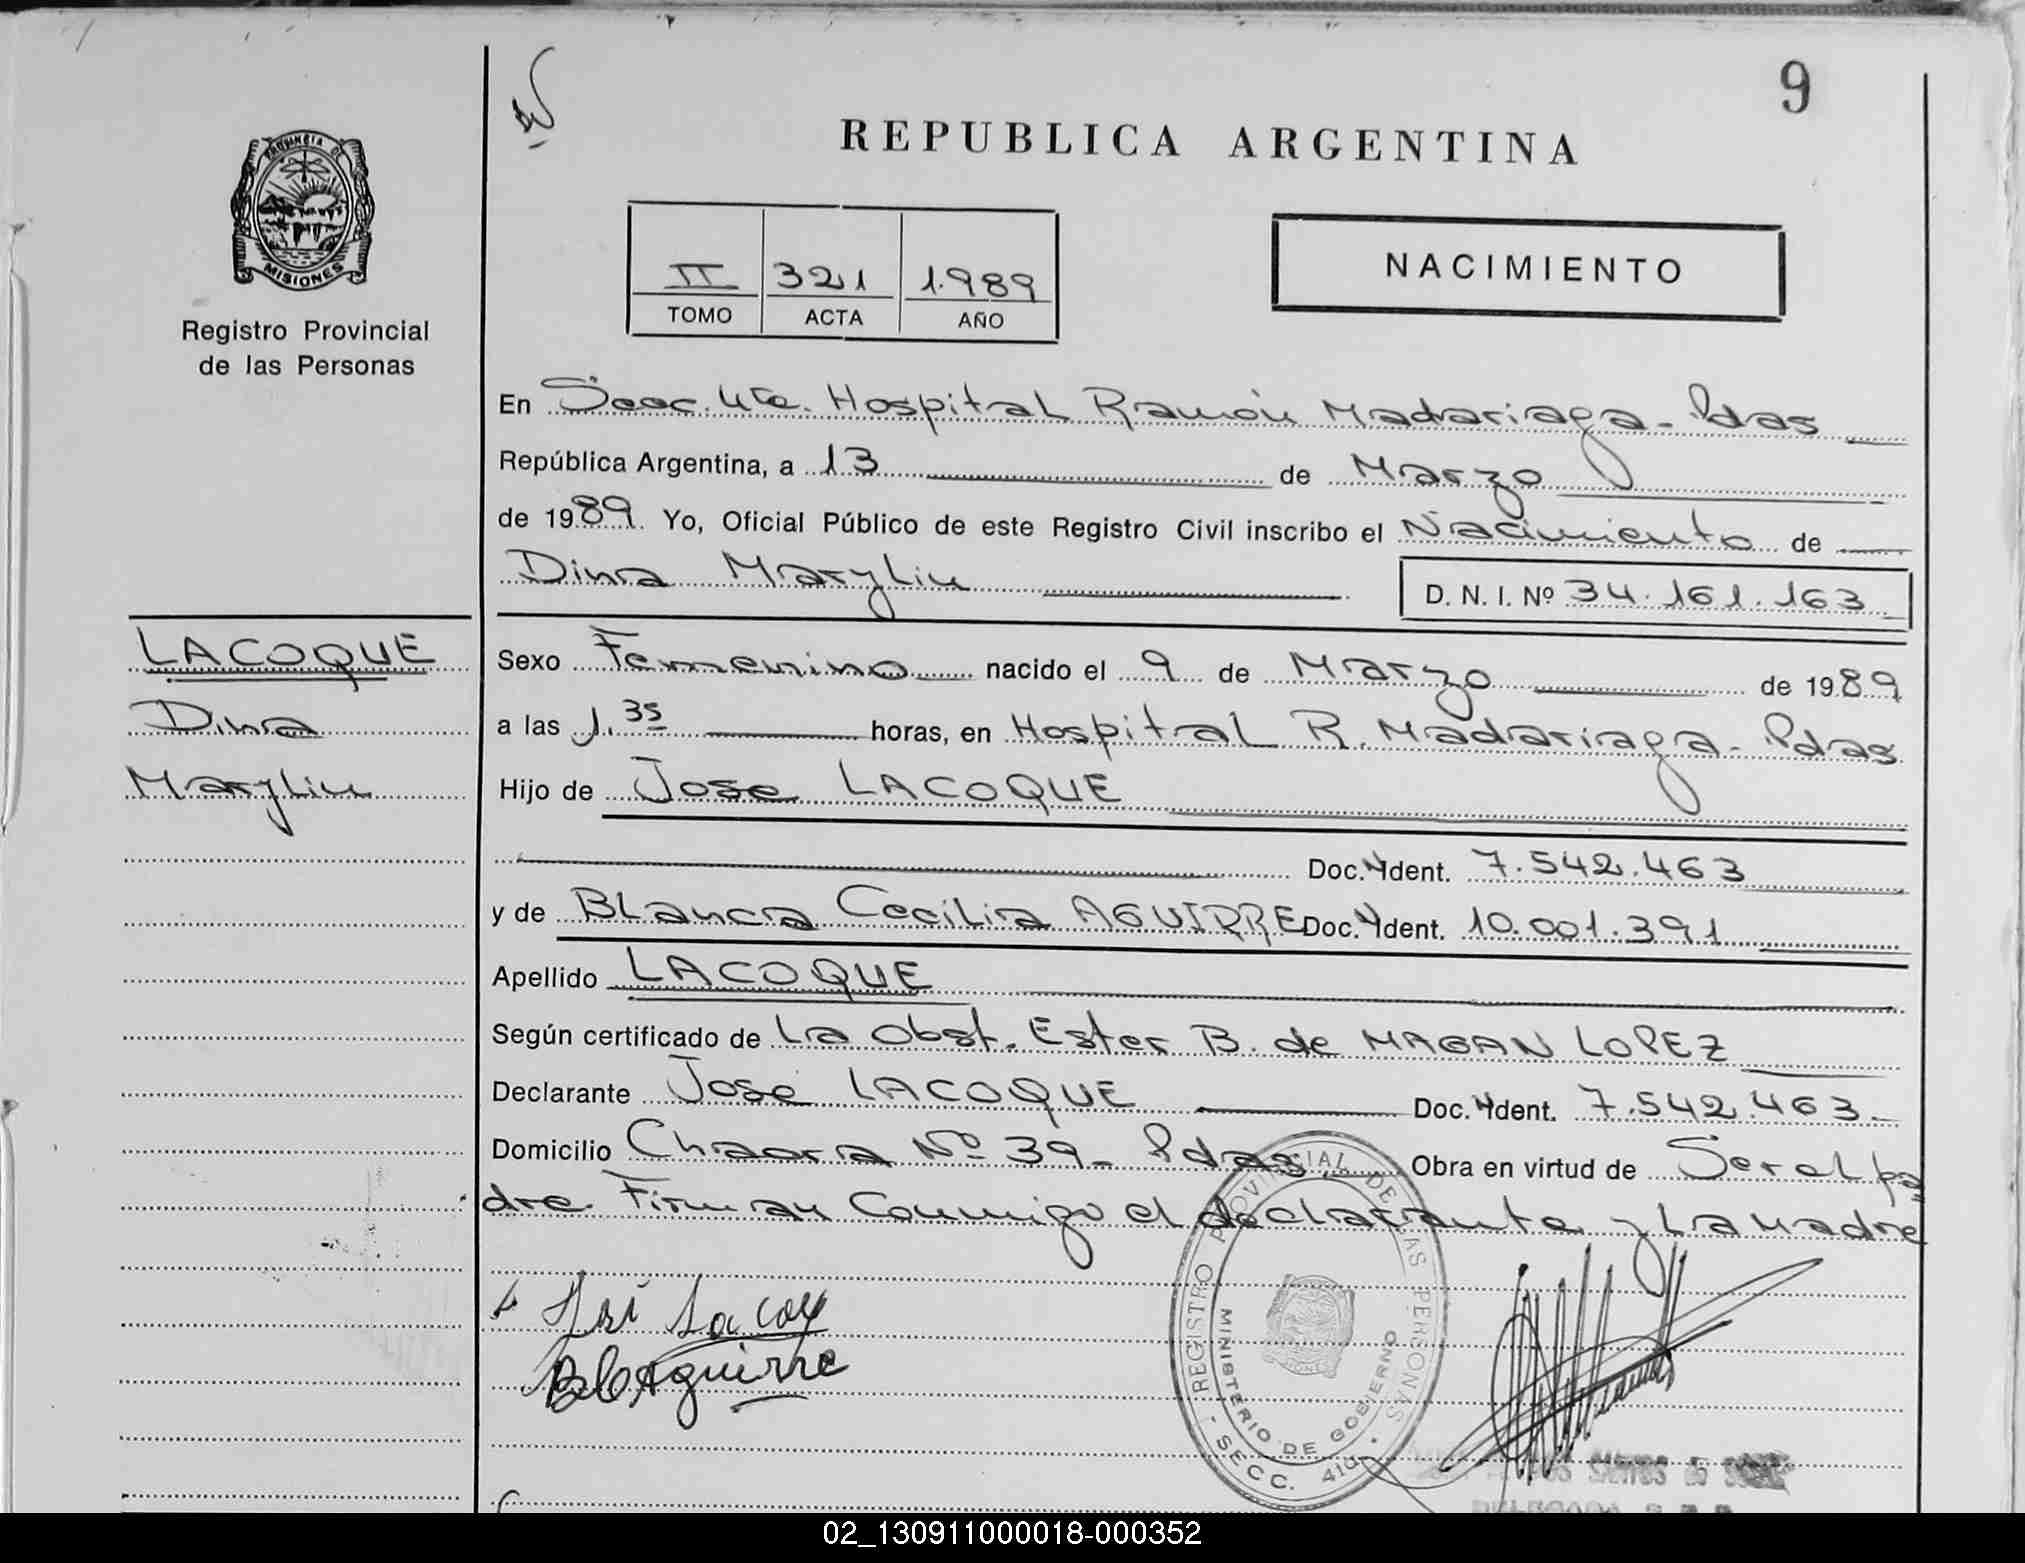 9
REPUBLICA ARGENTINA
PROVINCIA DE
MISIONES
Registro Provincial
de las Personas
II 321 1.989
TOMO ACTA AÑO
NACIMIENTO
En Secc. 4ta. Hospital Ramón Madariaga - Pdas
República Argentina, a 13 de Marzo
de 1989. Yo, Oficial Público de este Registro Civil inscribo el Nacimiento de
Dina Marylin D. N. I. Nº 34.161.163
LACOQUE
Dina
Marylin
Sexo Femenino nacido el 9 de Marzo de 1989
a las 1.35 horas, en Hospital R. Madariaga - Pdas
Hijo de Jose LACOQUE
Doc. Ident. 7.542.463
y de Blanca Cecilia AGUIRRE Doc. Ident. 10.001.391
Apellido LACOQUE
Según certificado de La Obst. Ester B. de MAGAN LOPEZ
Declarante José LACOQUE Doc. Ident. 7.542.463
Domicilio Chacra Nº 39 - Pdas Obra en virtud de Ser el pa
dre. Firman Conmigo el declarante y La Madre
B C Aguirre
REGISTRO PROVINCIAL DE LAS PERSONAS
MINISTERIO DE GOBIERNO
SECC. 4ta
02_130911000018-000352